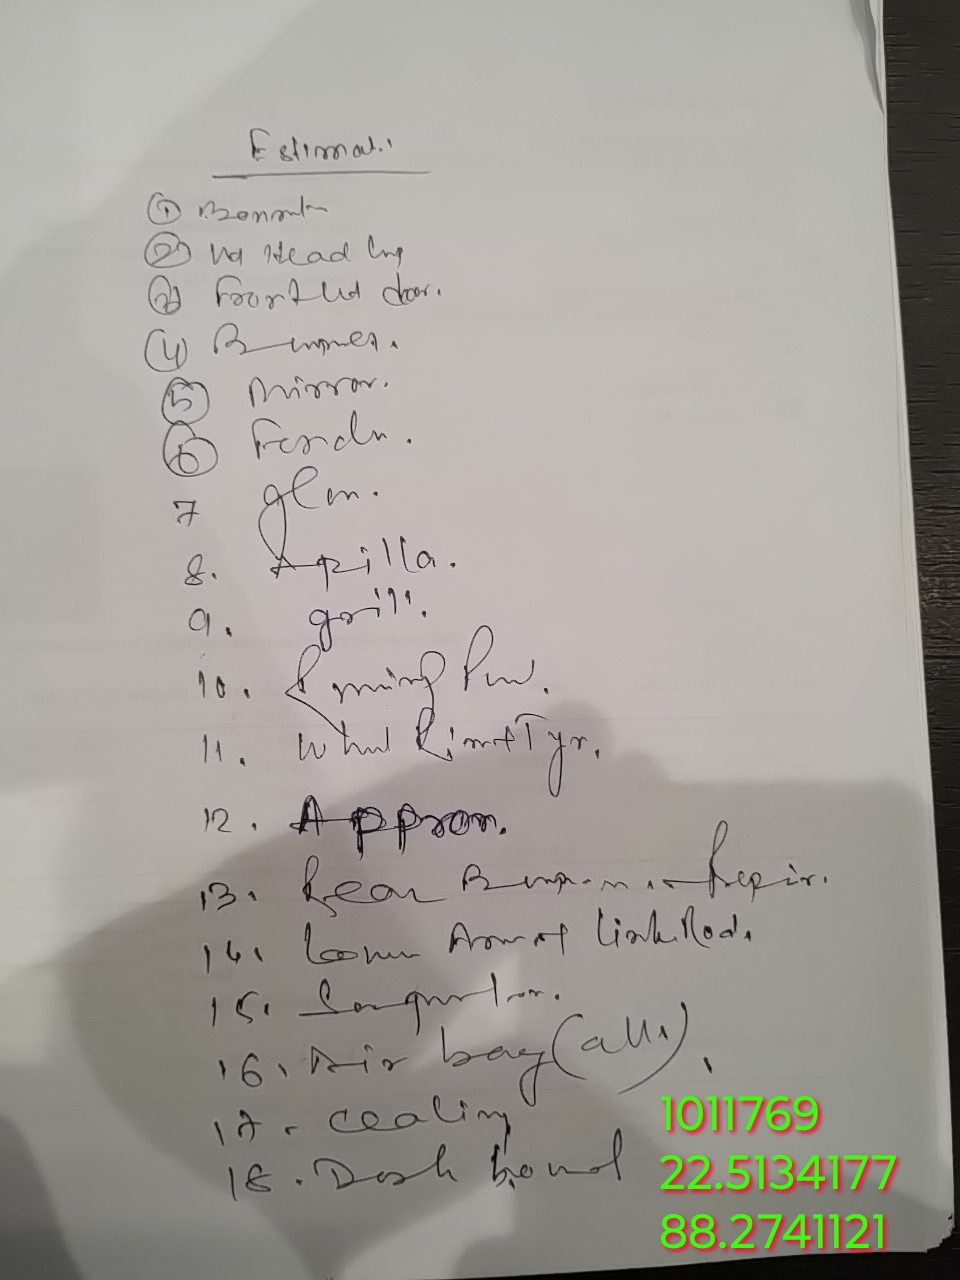 Estimat.
① Bonnet
② Hd Head
③ Front Hd door.
④ Bumper.
⑤ Mirror.
⑥ Fender.
7
8. Apilla.
9. grill.
10. Running
11. Wheel Rim & Tyr.
12. Appron.
13. Rear Bumper Repair.
14. Lower Arm & Link Rod.
15.
16. Air bag (all)
17. cealing
18. Dash board
1011769
22.5134177
88.2741121